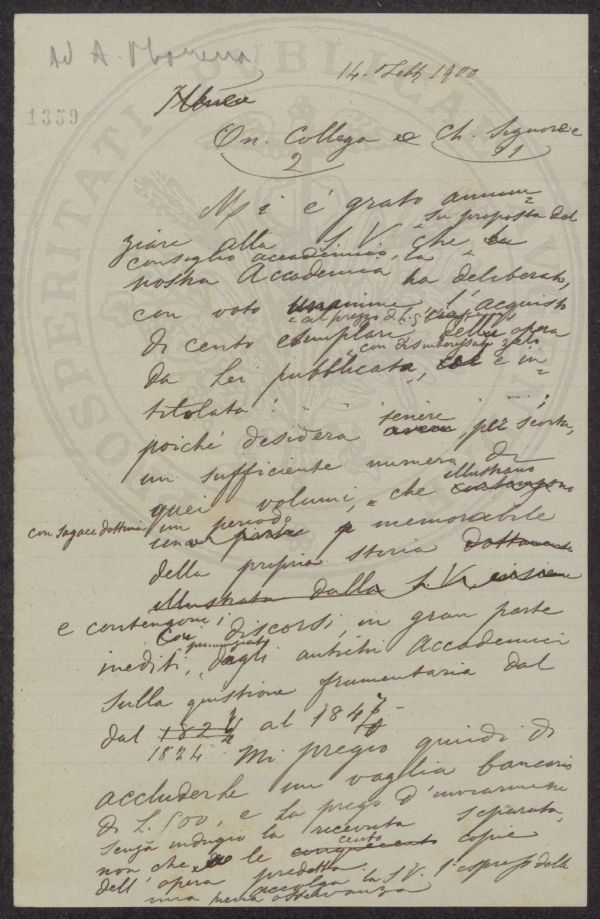 Ad A. Morena
14. Febb. 1900
1359
On. Collega e Ch. Signore
2
Mi è grato annun=
ziare alla S. V. che su proposta del
consiglio accademico, la
nostra Accademia ha deliberato,
con voto unanime l'acquisto
al prezzo di L. 5 ciascuno
di cento esemplari della opera
con disinteressato zelo
da Lei pubblicata, e in=
titolata: ... ;
poiché desidera tenere, per scorta,
un sufficiente numero di
quei volumi, che illustrano contengono
con sagace dottrina un periodo memorabile
della propria storia
illustrata dalla S. V.
e contengono i discorsi, in gran parte
inediti, pronunziati dagli antichi Accademici
sulla quistione frumentaria dal
dal 1824 al 1847
1824. Mi pregio quindi di
accluderle un vaglia bancario
di L. 500, e La prego d'inviarmene
senza indugio la ricevuta separata,
non che le cento cinquecento copie
dell'opera predetta.
accolga la S. V. l'espress. della
mia piena osservanza